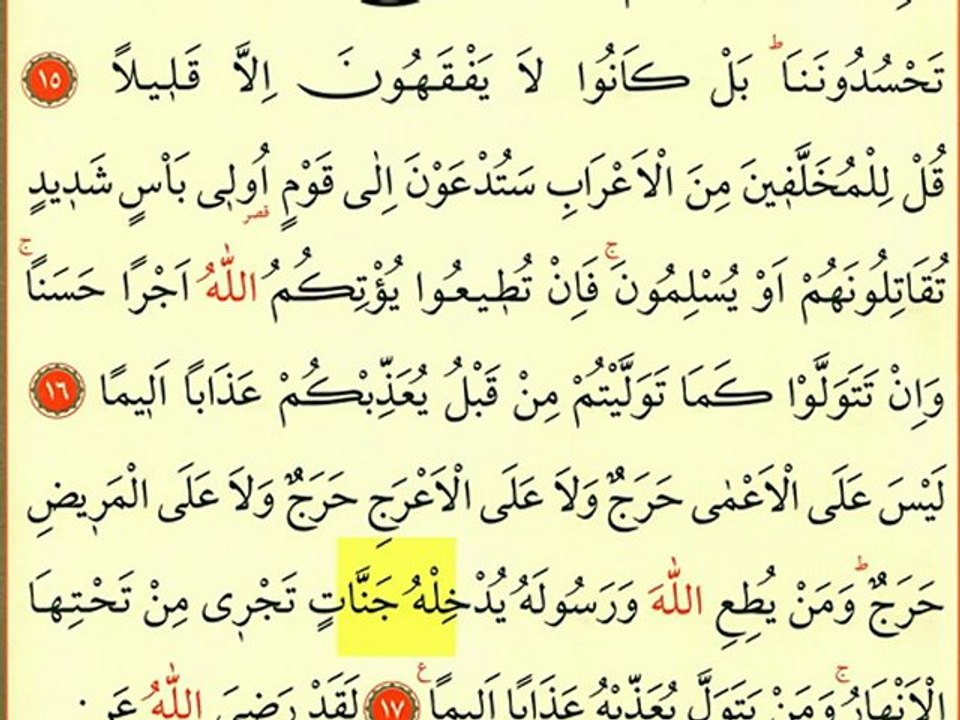 تَحْسُدُونَنَاۜ بَلْ كَانُوا لَا يَفْقَهُونَ اِلَّا قَلٖيلًا ١٥
قُلْ لِلْمُخَلَّفٖينَ مِنَ الْاَعْرَابِ سَتُدْعَوْنَ اِلٰى قَوْمٍ اُولٖى بَاْسٍ شَدٖيدٍ
تُقَاتِلُونَهُمْ اَوْ يُسْلِمُونَۚ فَاِنْ تُطٖيعُوا يُؤْتِكُمُ اللّٰهُ اَجْرًا حَسَنًاۚ
وَاِنْ تَتَوَلَّوْا كَمَا تَوَلَّيْتُمْ مِنْ قَبْلُ يُعَذِّبْكُمْ عَذَابًا اَلٖيمًا ١٦
لَيْسَ عَلَى الْاَعْمٰى حَرَجٌ وَلَا عَلَى الْاَعْرَجِ حَرَجٌ وَلَا عَلَى الْمَرٖيضِ
حَرَجٌۜ وَمَنْ يُطِعِ اللّٰهَ وَرَسُولَهُ يُدْخِلْهُ جَنَّاتٍ تَجْرٖى مِنْ تَحْتِهَا
الْاَنْهَارُۚ وَمَنْ يَتَوَلَّ يُعَذِّبْهُ عَذَابًا اَلٖيمًا ع ١٧ لَقَدْ رَضِىَ اللّٰهُ